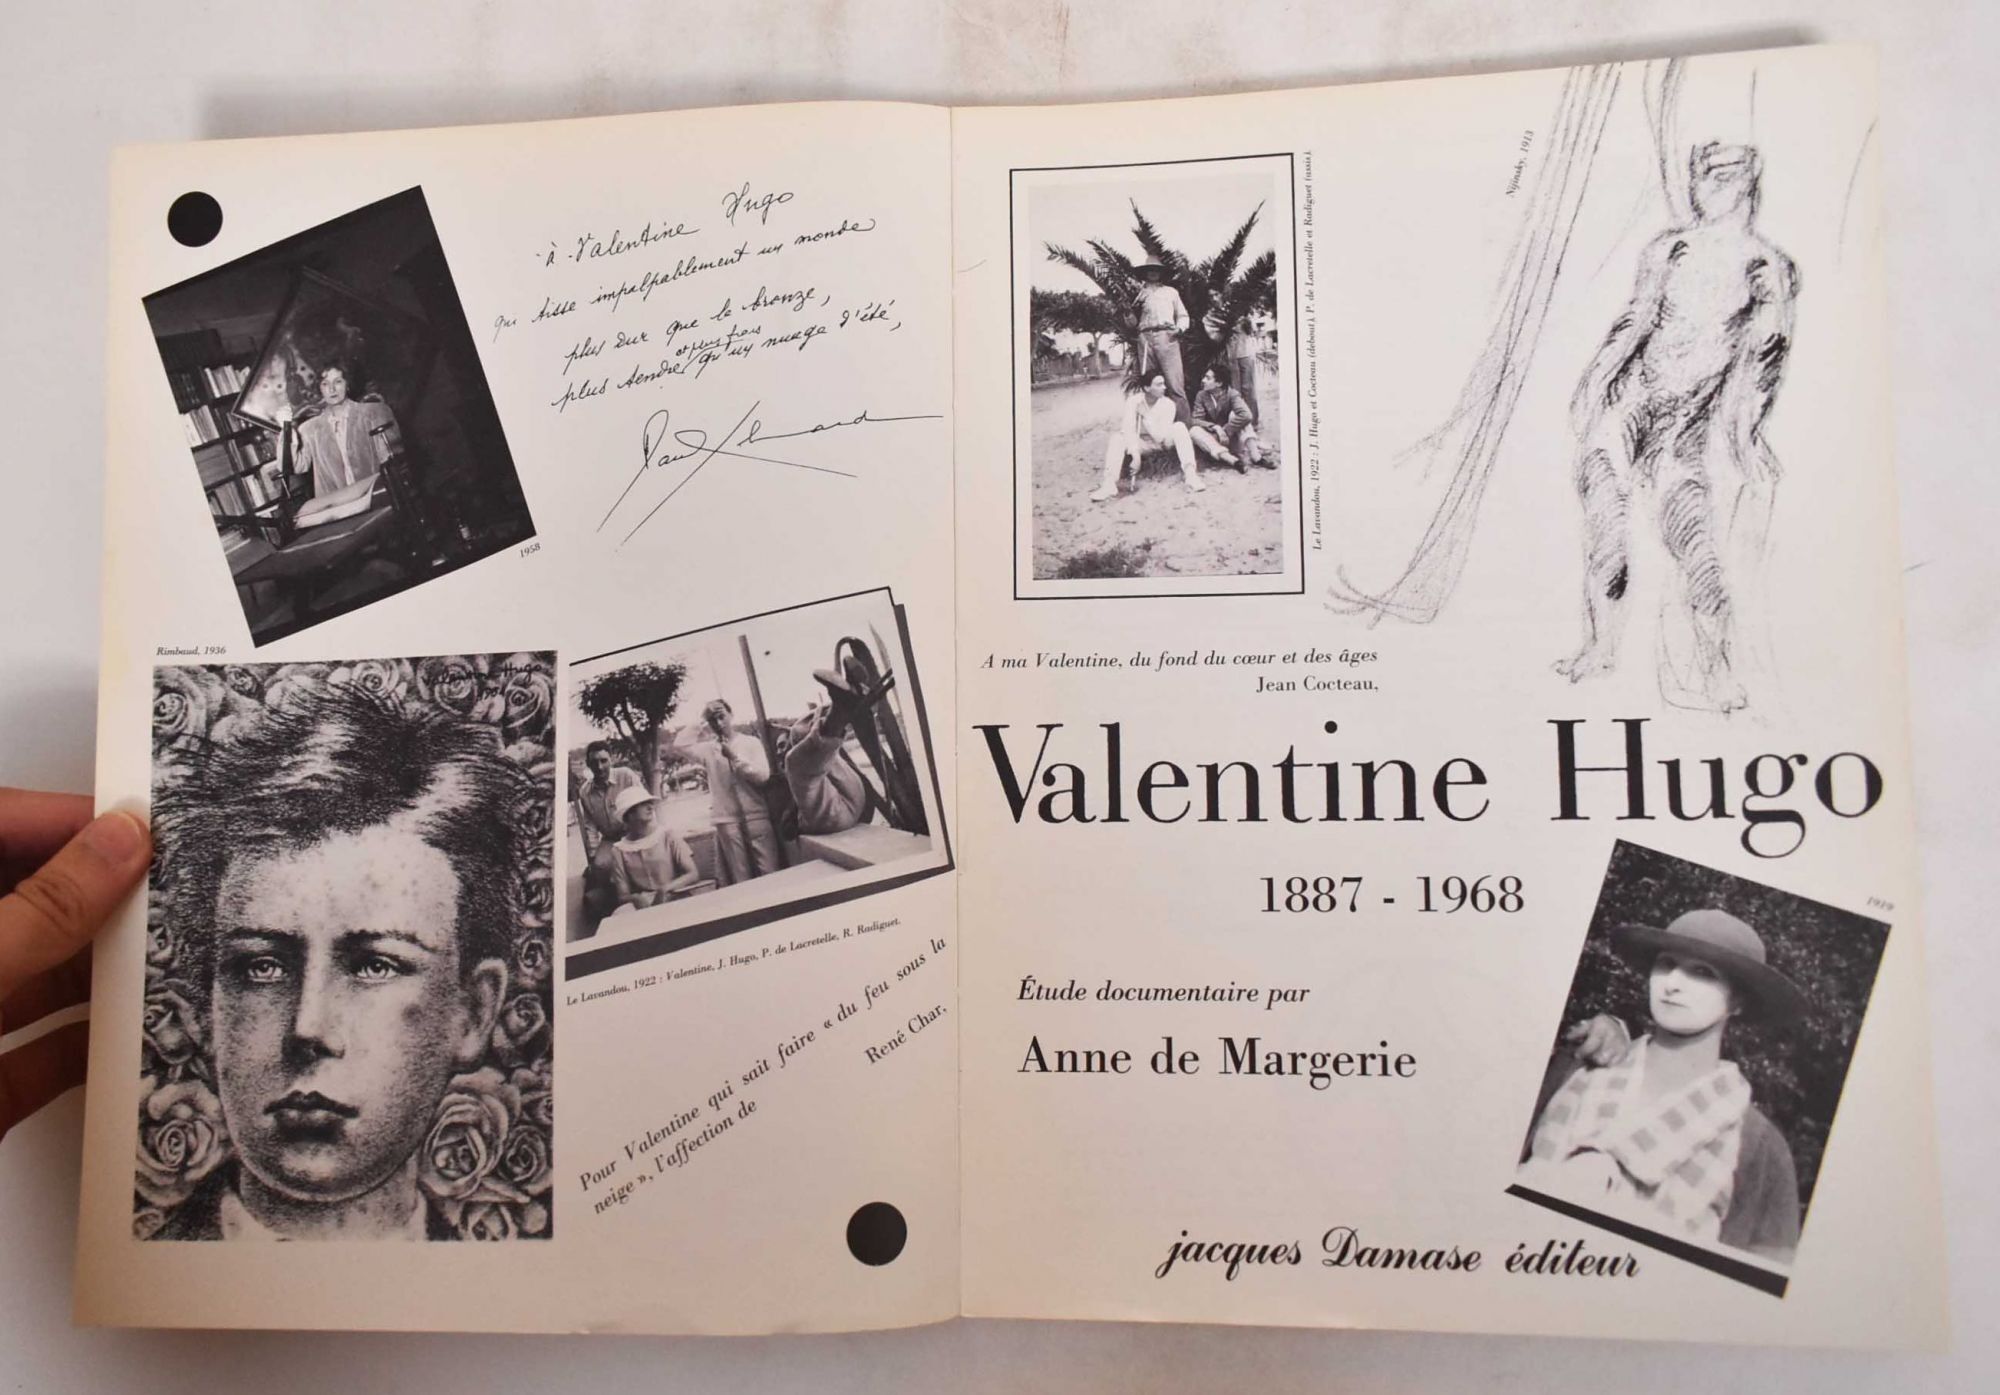 à Valentine Hugo
qui tisse impalpablement un monde
plus dur que le bronze,
et plus frais
plus tendre qu'un nuage d'été,
Paul Eluard
1958
Rimbaud, 1936
Valentine Hugo
Le Lavandou, 1922 : Valentine, J. Hugo, P. de Lacretelle, R. Radiguet.
Pour Valentine qui sait faire « du feu sous la
neige », l'affection de
René Char,
Le Lavandou, 1922 : J. Hugo et Cocteau (debout), P. de Lacretelle et Radiguet (assis).
Nijinsky, 1913
A ma Valentine, du fond du cœur et des âges
Jean Cocteau,
Valentine Hugo
1887 - 1968
1919
Étude documentaire par
Anne de Margerie
jacques Damase éditeur